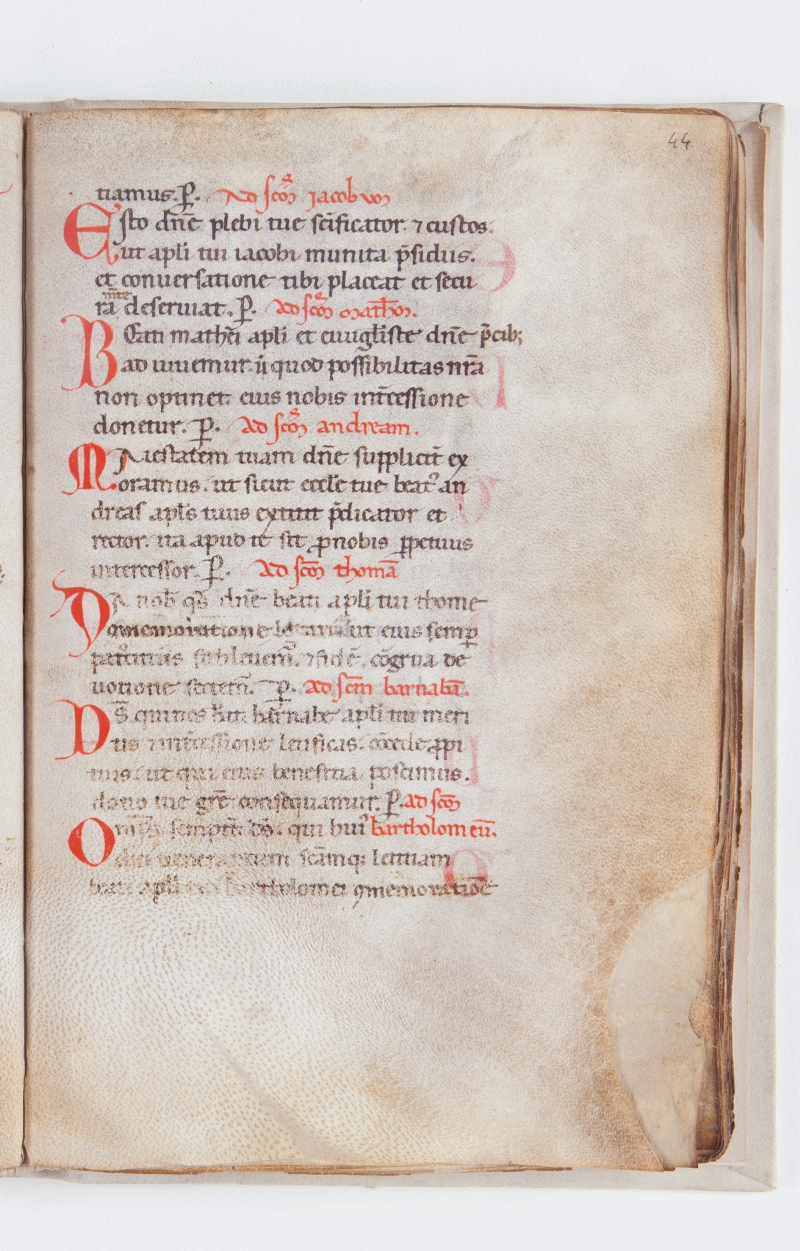 44
tiamus. P̱. Ad sc̄m̄ iacobum
Esto dn̄e plebi tue sc̄ificator. ⁊ custos.
ut apl̄i tui iacobi munita p̄sidiis.
et conuersatione tibi placeat et secu
ra mte deseruiat. P̱. ad sc̄m̄ math̄m.
BEati mathei apl̄i et euuḡliste dn̄e p̄cib;
adiuuemur. ut quod possibilitas nr̄a
non optinet. eius nobis int̄cessione
donetur. P̱. Ad sc̄m̄ andream.
MAiestatem tuam dn̄e suppliciť ex
oramus. ut sicut eccl̄e tue beat᾽ an
dreas apl̄s tuus extitit p̄dicator et
rector. ita apud te sit ꝓ nobis ꝑpetuus
intercessor. P̱. Ad sc̄m̄ thomā
DA nob̄ qs̄ dn̄e beati apl̄i tui thome
ꝯmemoratione ut eius semꝑ
patrociniis subleuem̄. ⁊ fidē cōgrua de
uotione sectem̄. P̱. ad sc̄m barnabā.
DS̄ qui nos bt̄i barnabe apl̄i tui meri
tis ⁊ int̄cessione letificas. cōcede ꝓpi
tius. ut qui eius beneficia poscimus.
dono tue gr̄e consequamur. P̱. ad sc̄m̄
Om̄s semꝑit̄ ds̄. qui hui᾽ bartholomeū.
diei uenerandam sc̄amq; letitiam
beati apl̄i tui bartholomei ꝯmemoratiōe